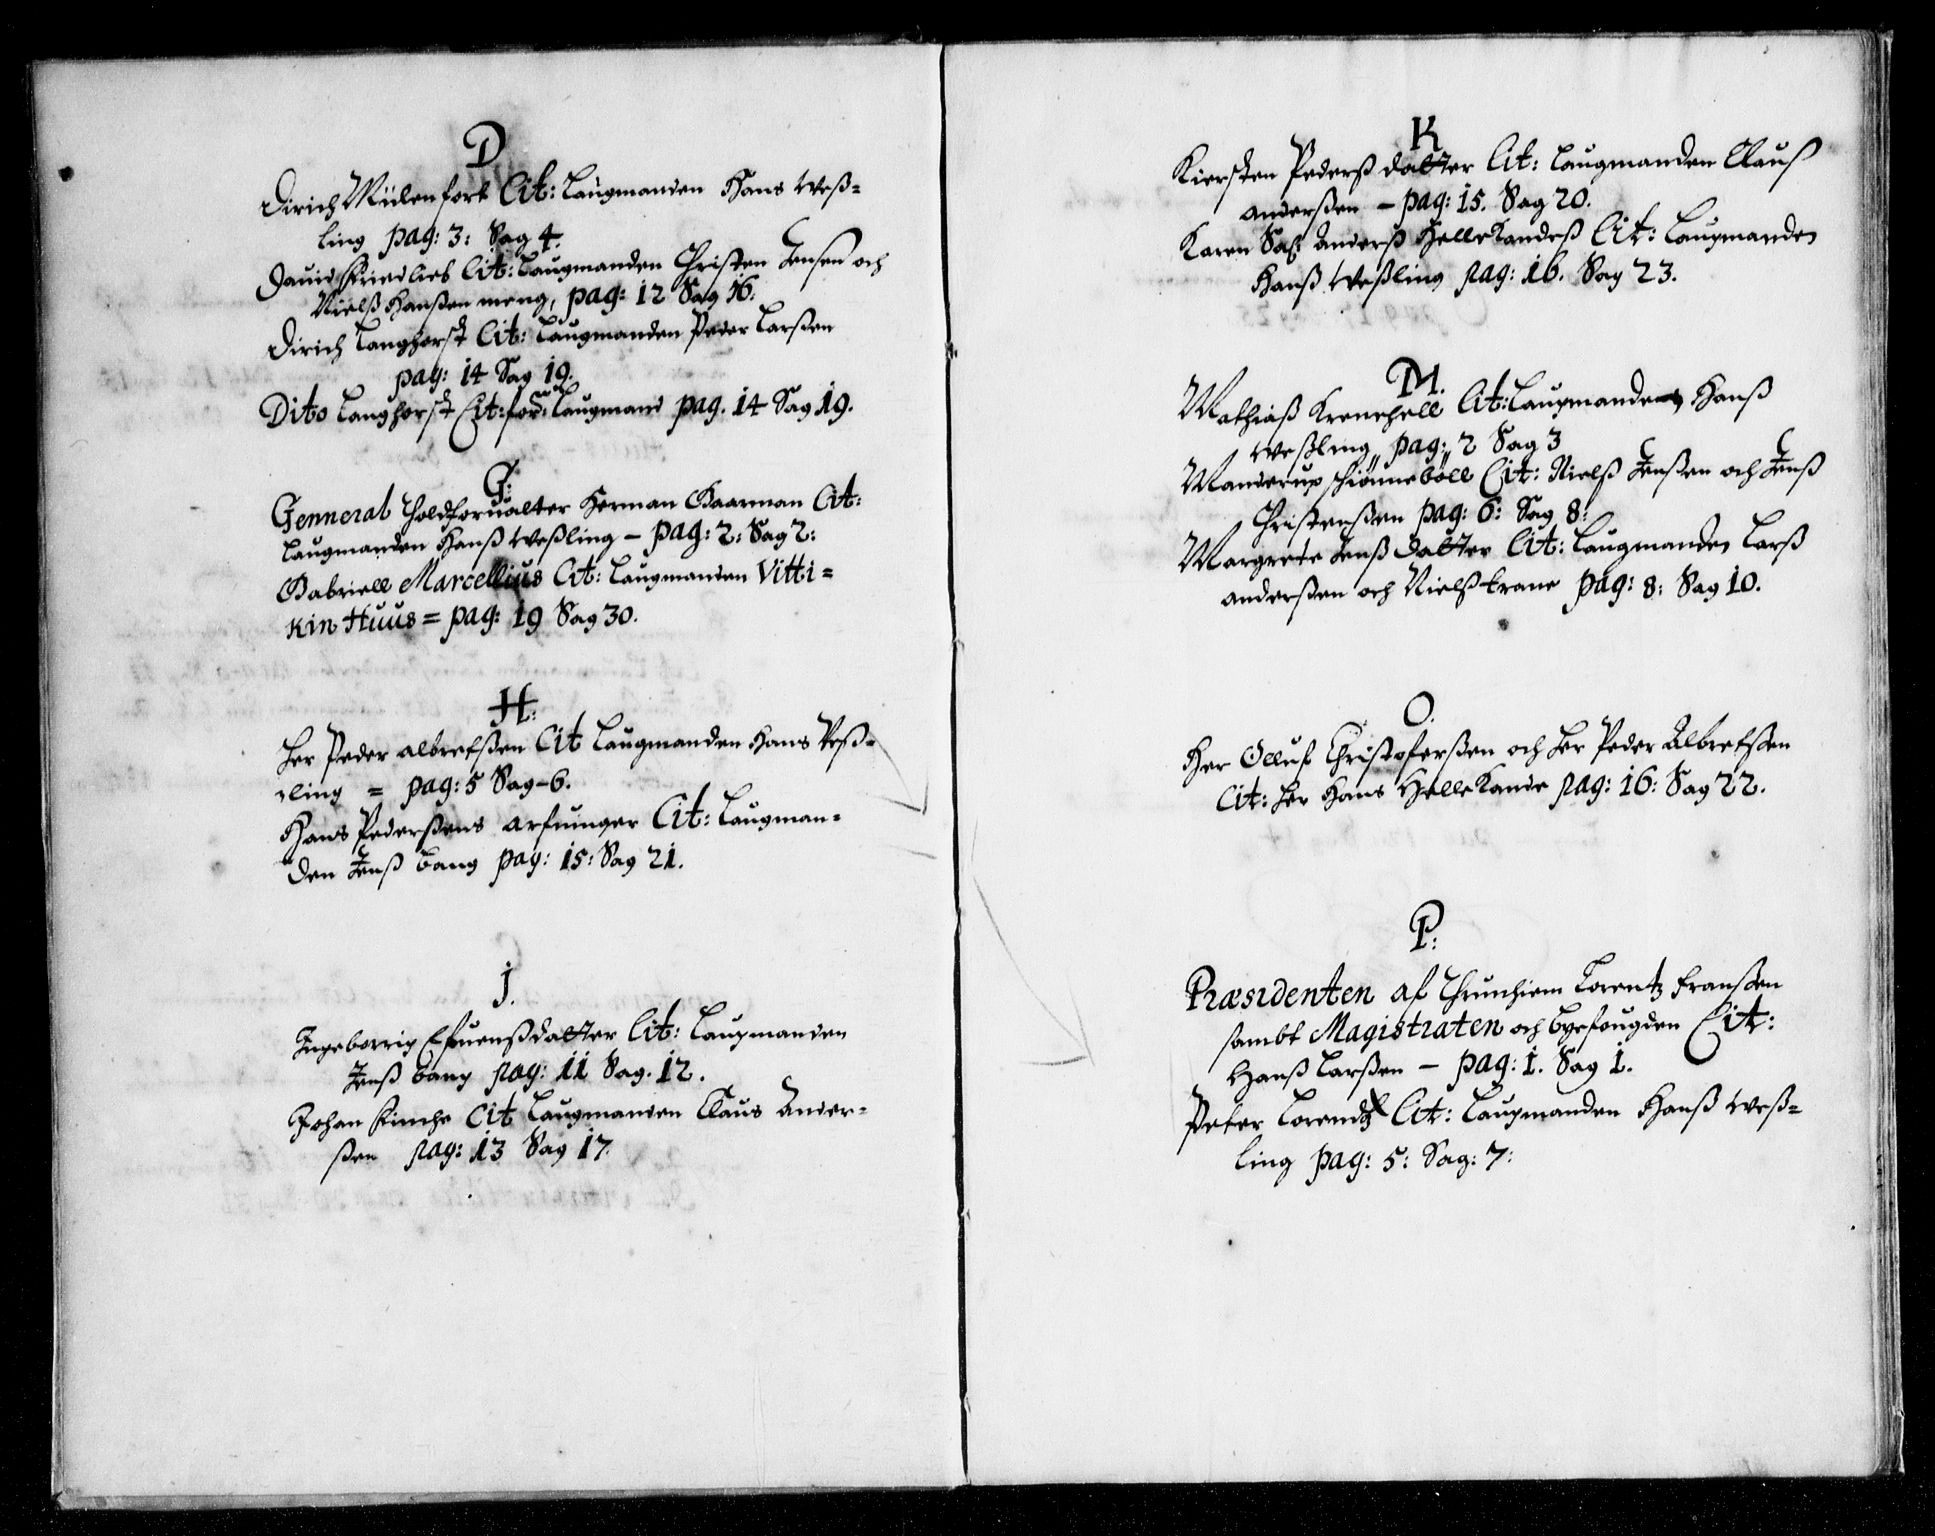 D
Dirich Mülenfort Cit: Laugmanden Hans Weß=
ling pag: 3: Sag 4.
Dauid Friedlieb Cit: Laugmanden Christen Jensen och
Nielß Hanßen meng, pag: 12 Sag 16:
Dirich Langhorst Cit: Laugmanden Peder Larßen
pag: 14 Sag 19.
Dito Langhorst Cit: for: Laugmand pag. 14 Sag 19.
G:
Genneral Tholdforualter Herman Gaarman Cit:
Laugmanden Hanß Weßling - pag: 2: Sag 2:
Gabriell Marcellius Cit: Laugmanden Vitti=
kin Huus = pag: 19 Sag 30.
H:
Her Peder albretßen Cit Laugmanden Hans Veß=
ling = pag: 5 Sag-6.
Hans Pederßens arfuinger Cit: Laugman=
den Jenß bang pag: 15: Sag 21.
J.
Ingeborrig Efuenßdatter Cit: Laugmanden
Jenß bang pag: 11 Sag. 12.
Johan Finche Cit Laugmanden Claus Ander=
ßen pag: 13 Sag 17.
K
Kiersten Pederß datter Cit: Laugmanden Clauß
anderßen - pag: 15. Sag 20.
Karen Sal: Anderß Hellekandeß Cit: Laugmanden
Hanß Weßling pag: 16. Sag 23.
M.
Mathiaß Kronehell Cit: Laugmanden Hanß
Weßling,, pag:,, 2 Sag 3
Manderup schiønnebøll Cit: Nielß Jenßen och Jenß
Christenßen pag: 6: Sag 8:
Margrete Jenß datter Cit: Laugmanden Larß
anderßen och Nielß trane pag: 8: Sag 10.
O.
Her Olluf Christoferßen och Her Peder Albretßen
Cit: Her Hans Hellekande pag: 16: Sag 22.
P:
Præsidenten af Thrunhiem Lorentz Franßen
sambt Magistraten och byefougden Cit:
Hanß Larßen - pag: 1. Sag 1.
Peter Lorendtz Cit: Laugmanden Hanß Weß=
ling pag: 5: Sag: 7: